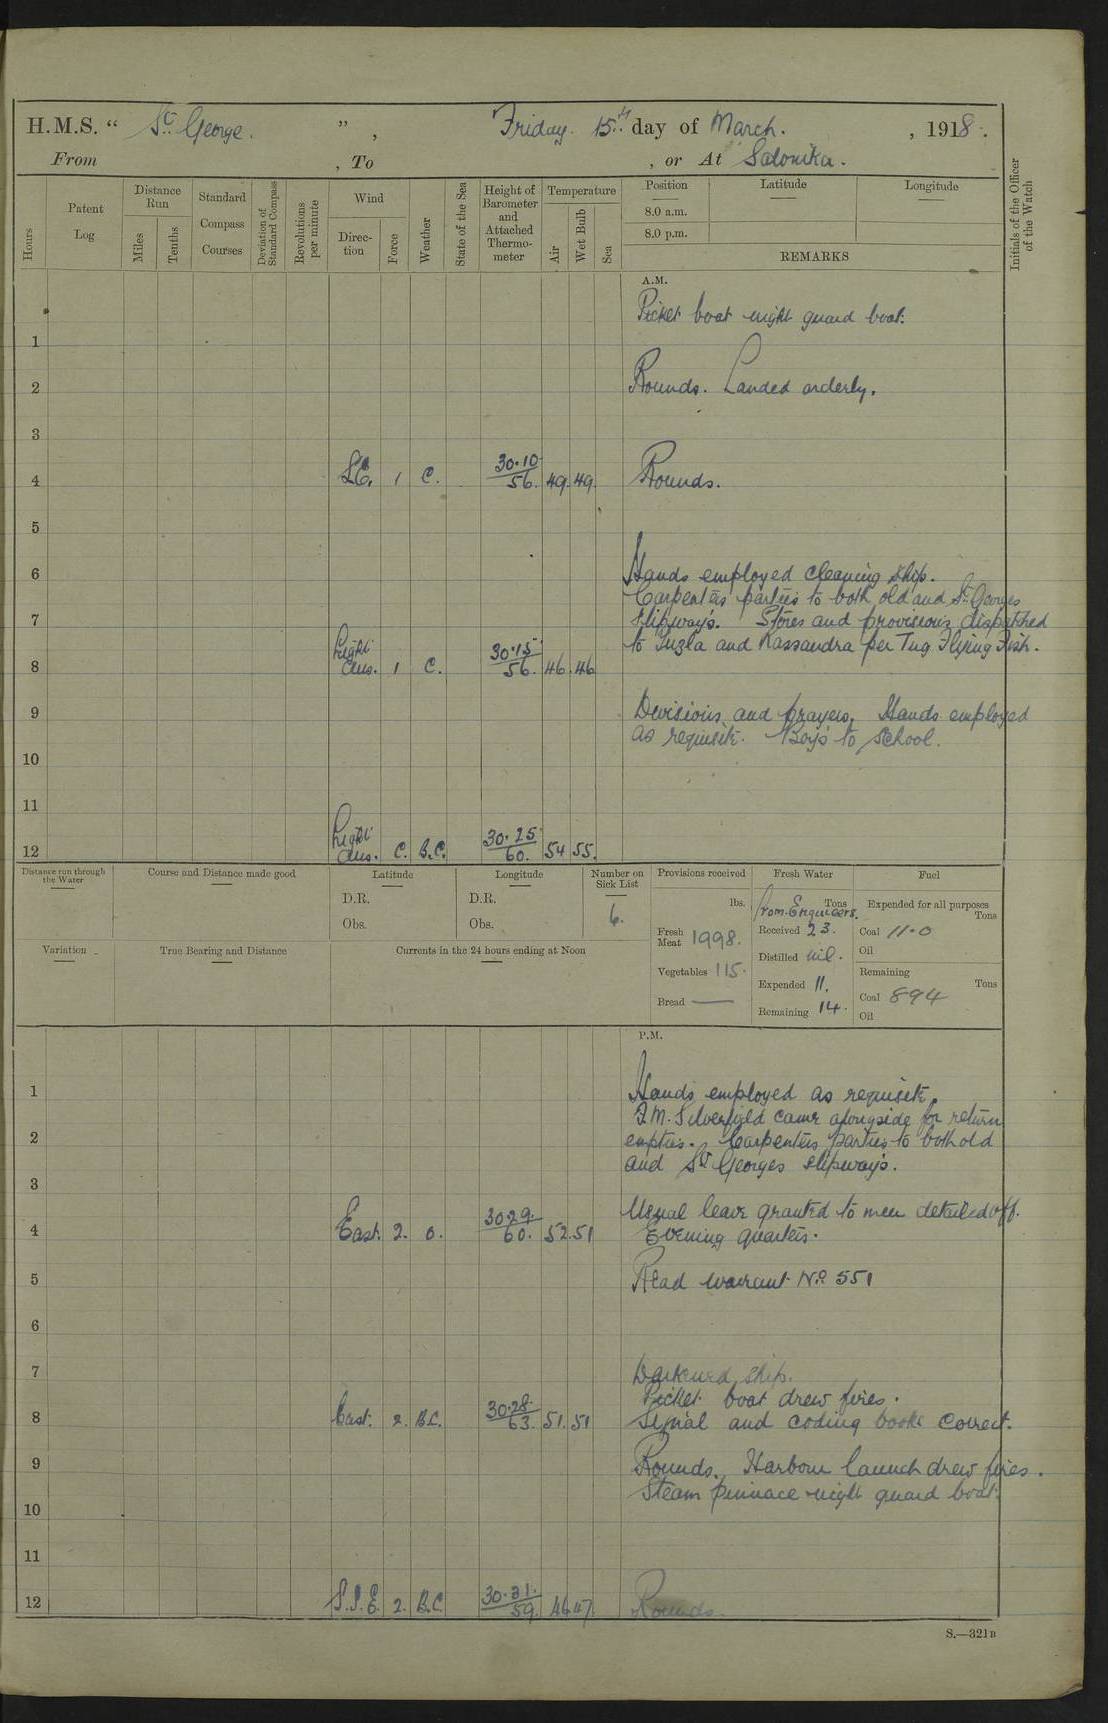 H.M.S. “ St George. ” , Friday. 15th day of March. , 1918.
From , To , or At Salonika.
Hours
Patent Log
Distance Run
Miles
Tenths
Standard Compass Courses
Deviation of Standard Compass
Revolutions per minute
Wind
Direction
Force
Weather
State of the Sea
Height of Barometer and Attached Thermometer
Temperature
Air
Wet Bulb
Sea
Position
Latitude
Longitude
8.0 a.m.
8.0 p.m.
REMARKS
Initials of the Officer of the Watch
A.M.
Picket boat night guard boat.
1
2 Rounds. Landed orderly.
3
4 S.E. 1 C. 30.10 56. 49. 49. Rounds.
5
6 Hands employed cleaning ship.
Carpenters parties to both old and St Georges
7 slipways. Stores and provisions dispatched
to Tuzla and Kassandra per Tug Flying Fish.
8 Light airs. 1 C. 30.15 56. 46. 46
9 Divisions and prayers. Hands employed
as requisite. Boys to school.
10
11
12 Light airs. C. B.C. 30.25 60. 54 55.
Distance run through the Water
Course and Distance made good
Latitude
D.R.
Obs.
Longitude
D.R.
Obs.
Number on Sick List
6.
Variation
True Bearing and Distance
Currents in the 24 hours ending at Noon
Provisions received
lbs.
Fresh Meat 1998.
Vegetables 115.
Bread —
Fresh Water
Tons
From Engineers.
Received 23.
Distilled nil.
Expended 11.
Remaining 14.
Fuel
Expended for all purposes
Tons
Coal 11.0
Oil
Remaining
Tons
Coal 894
Oil
P.M.
1 Hands employed as requisite.
Silverfield came alongside for return
2 empties. Carpenters parties to both old
and St Georges slipways.
3
Usual leave granted to men detailed off.
4 East. 2. o. 30.29. 60. 52. 51 Evening quarters.
5 Read warrant No. 551
6
7 Darkened ship.
Picket boat drew fires.
8 East. 2. B.C. 30.28. 63. 51. 51 Signal and coding books correct.
9 Rounds. Harbour launch drew fires.
Steam pinnace night guard boat.
10
11
12 S.S.E. 2. B.C. 30.31. 59. 46 47 Rounds.
S.—321B